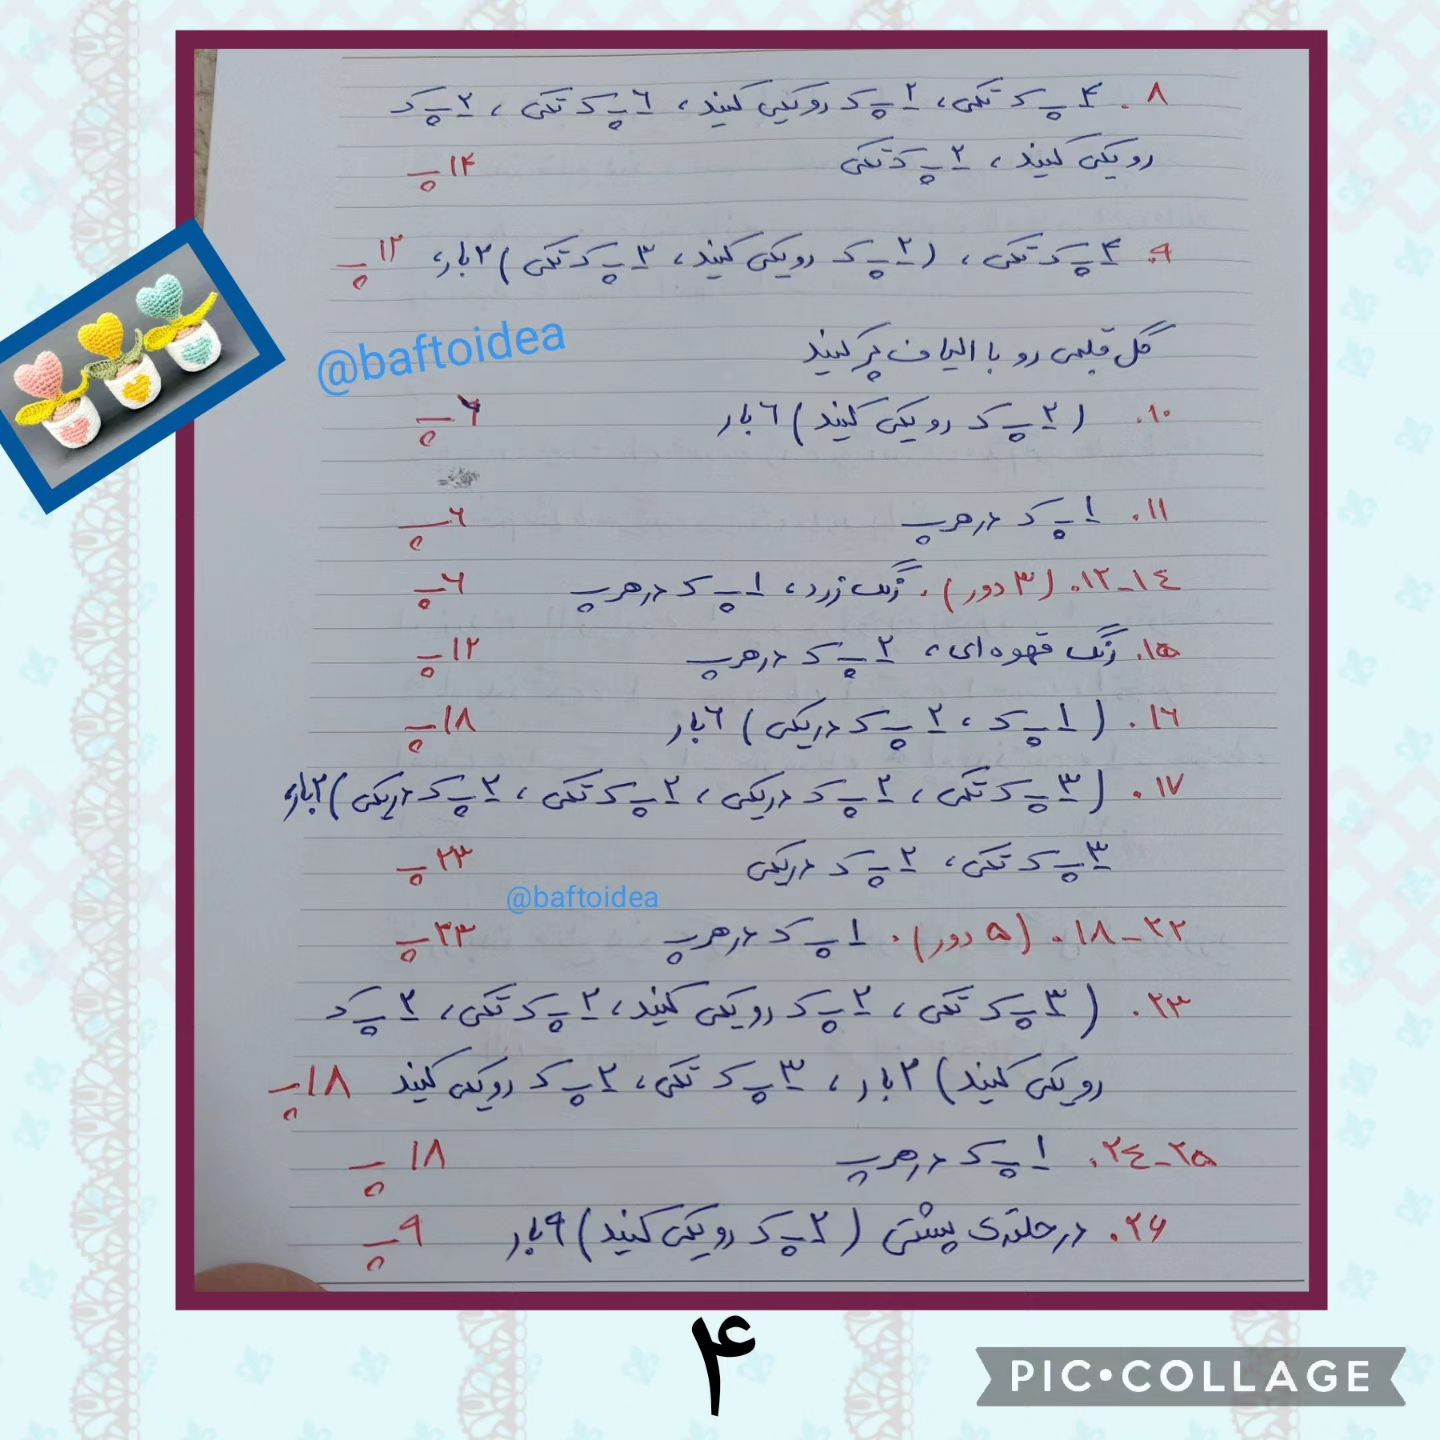 ۸. ۴ پ ک تکی، ۲ پ ک رو یکی کنید، ۶ پ ک تکی، ۲ پ ک
رو یکی کنید، ۲ پ ک تکی ۱۴ پ
۹. ۴ پ ک تکی، (۲ پ ک رو یکی کنید، ۳ پ ک تکی) ۲ بار، ۱۲ پ
@baftoidea
گل قلبی رو با الیاف پر کنید
۱۰. (۲ پ ک رو یکی کنید) ۶ بار ۶ پ
۱۱. ۱ پ ک در هر پ ۶ پ
۱۲-۱۴. (۳ دور). رنگ زرد، ۱ پ ک در هر پ ۶ پ
۱۵. رنگ قهوه ای، ۲ پ ک در هر پ ۱۲ پ
۱۶. (۱ پ ک، ۲ پ ک در یکی) ۶ بار ۱۸ پ
۱۷. (۳ پ ک تکی، ۲ پ ک در یکی، ۲ پ ک تکی، ۲ پ ک در یکی) ۲ بار،
۳ پ ک تکی، ۲ پ ک در یکی ۲۳ پ
@baftoidea
۱۸-۲۲. (۵ دور). ۱ پ ک در هر پ ۲۳ پ
۲۳. (۳ پ ک تکی، ۲ پ ک رو یکی کنید، ۲ پ ک تکی، ۲ پ ک
رو یکی کنید) ۲ بار، ۳ پ ک تکی، ۲ پ ک رو یکی کنید ۱۸ پ
۲۴-۲۵. ۱ پ ک در هر پ ۱۸ پ
۲۶. در حلقه ی پشتی (۲ پ ک رو یکی کنید) ۹ بار ۹ پ
۴
PIC•COLLAGE